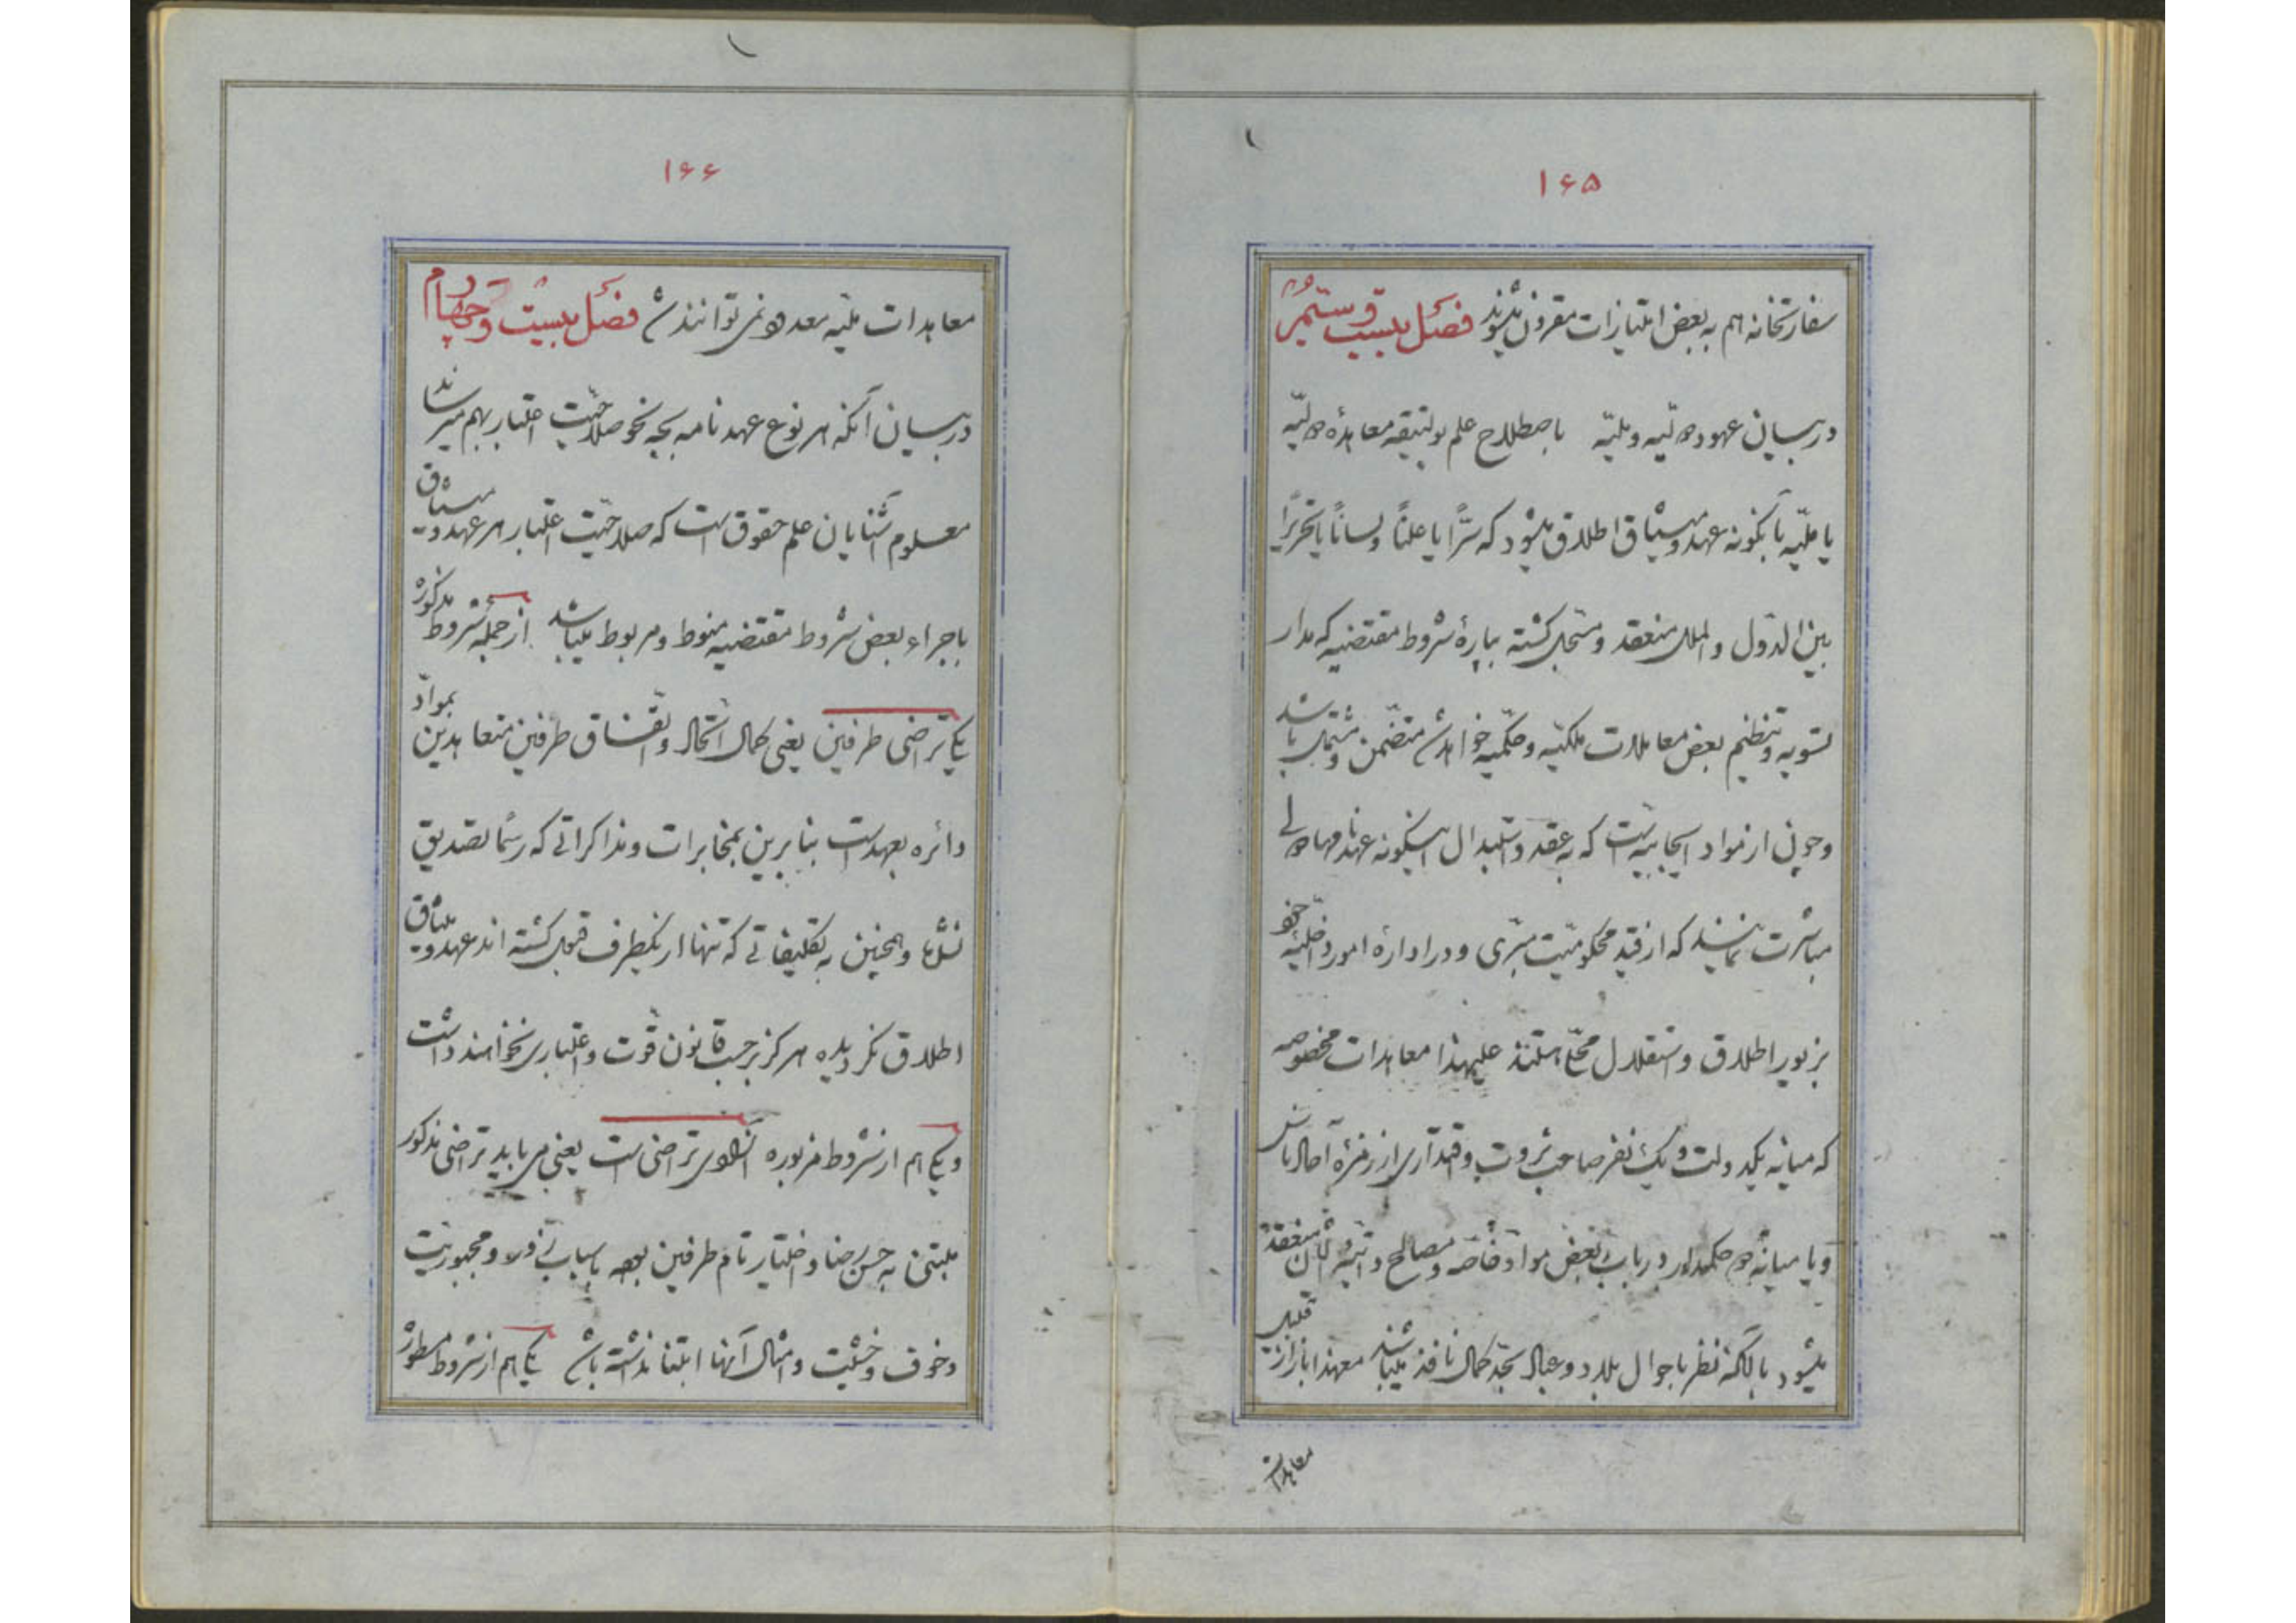 ۱۶۵
سفارتخانه هم به بعض امتیازات مقرون میشوند فصل بیست و سیّم
در بیان عهود دولیّه و ملیّه باصطلاح علم پولتیقه معاهدهٔ دولیّه
یا ملیّه بآنگونه عهد و میثاق اطلاق میشود که سرّاً یا علناً و لساناً یا تحریراً
بین الدّول و الملل منعقد و مسجّل گشته بپارهٔ شروط مقتضیه که مدار
تسویه و تنظیم بعض معاملات ملکیّه و حکمیّه خواهد شد متضمّن و مشتمل باشد
و چون از مواد ایجابیه است که به عقد و استبدال اینگونه عهدنامها دولی
مباشرت نمایند که از قید محکومیّت مبرّی و در ادارهٔ امور داخلیّهٔ خود
بزیور اطلاق و استقلال محلّی هستند علیهذا معاهدات مخصوصه
که میانه یکدولت و یک نفر صاحب ثروت و اقتدار از زمرهٔ آحاد ناس
و یا میانهٔ دو حکمدار در باب بعض مواد خاصّه و مصالح ذاتیهٔ ایشان منعقد
میشود با آنکه نظر باحوال بلاد و عباد بحدّ کمال نافذ میباشند معهذا باز از قبیل
معاهدات
۱۶۶
معاهدات ملیّه معدود نمی توانند شد فصل بیست و چهارم
در بیان آنکه هر نوع عهدنامه بچه نحو صلاحیّت اعتبار بهم میرساند
معلوم آشنایان علم حقوق است که صلاحیّت اعتبار هر عهد و میثاق
باجراء بعض شروط مقتضیه منوط و مربوط میباشد از جمله شروط مذکوره
یکی تراضی طرفین یعنی کمال اتّحاد و اتّفاق طرفین متعاهدین بموادّ
دائره بعهد است بنابرین بمخابرات و مذاکراتی که رسماً تصدیق
نشده و همچنین به تکلیفاتی که تنها از یکطرف قبول گشته اند عهد و میثاق
اطلاق نگردیده هرگز برحسب قانون قوّت و اعتباری نخواهند داشت
و یکی هم از شروط مزبوره آزادی تراضی است یعنی می باید تراضی مذکور
مبتنی به حسن رضا و اختیار تام طرفین بوده باسباب زور و مجبوریّت
و خوف و خشیت و امثال آنها ابتنا نداشته باشد یکی هم از شروط مسطوره